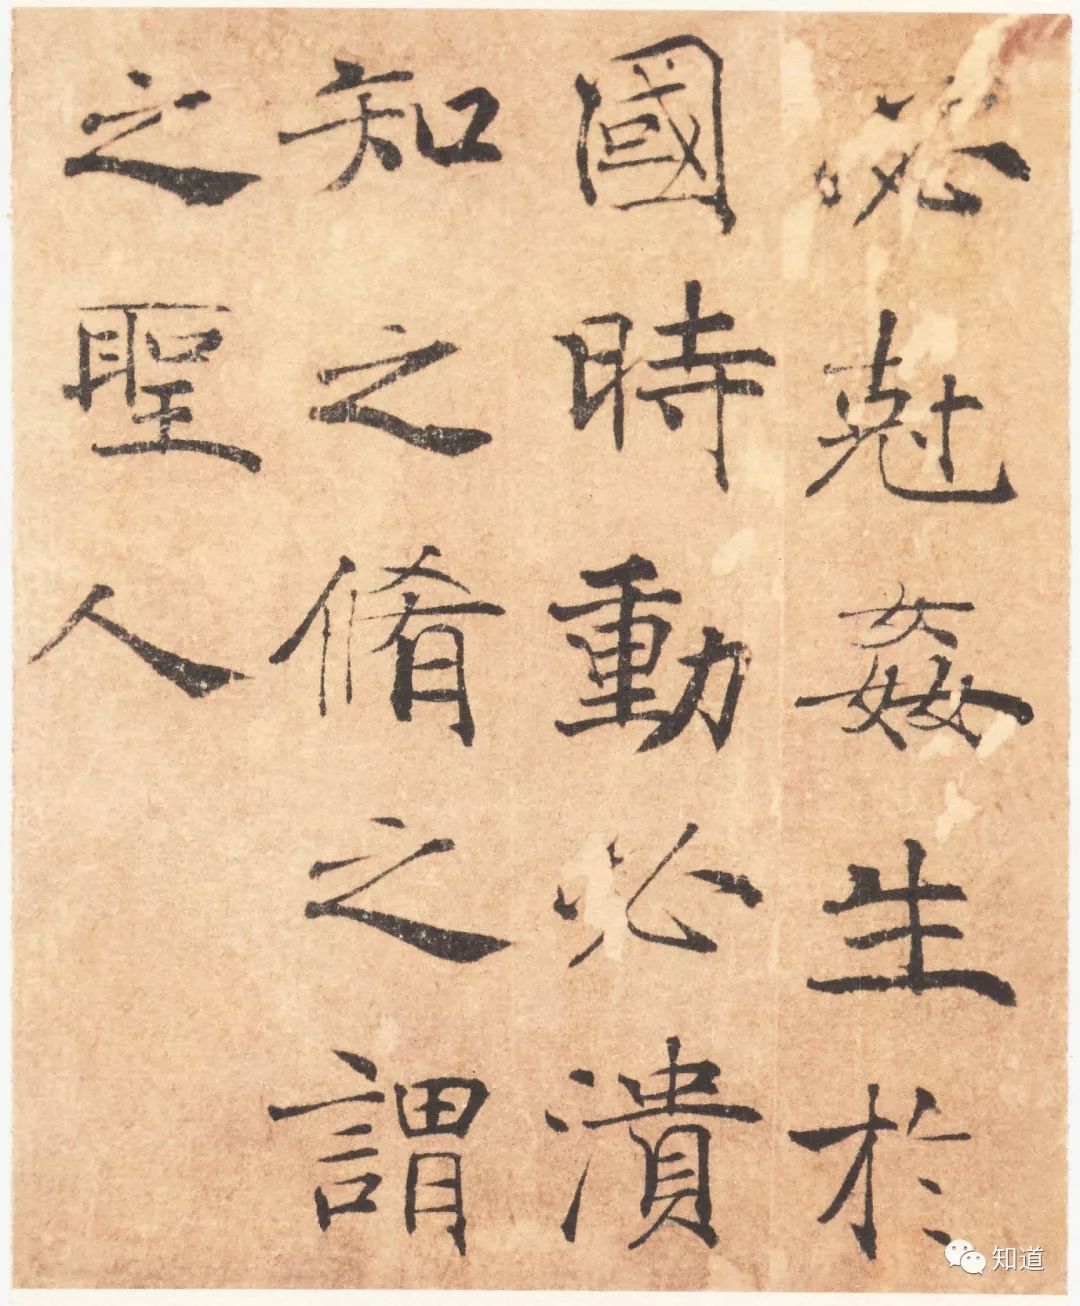 必尅姦生於
國時動必潰
知之脩之謂
之聖人
知道